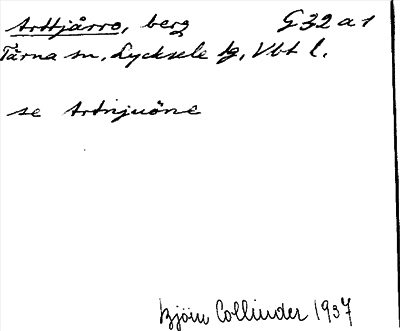 Arttjårro, berg G 32 a 1
Tärna sn, Lycksele tg, Vbt l.
se Artnjuöne
Björn Collinder 1937